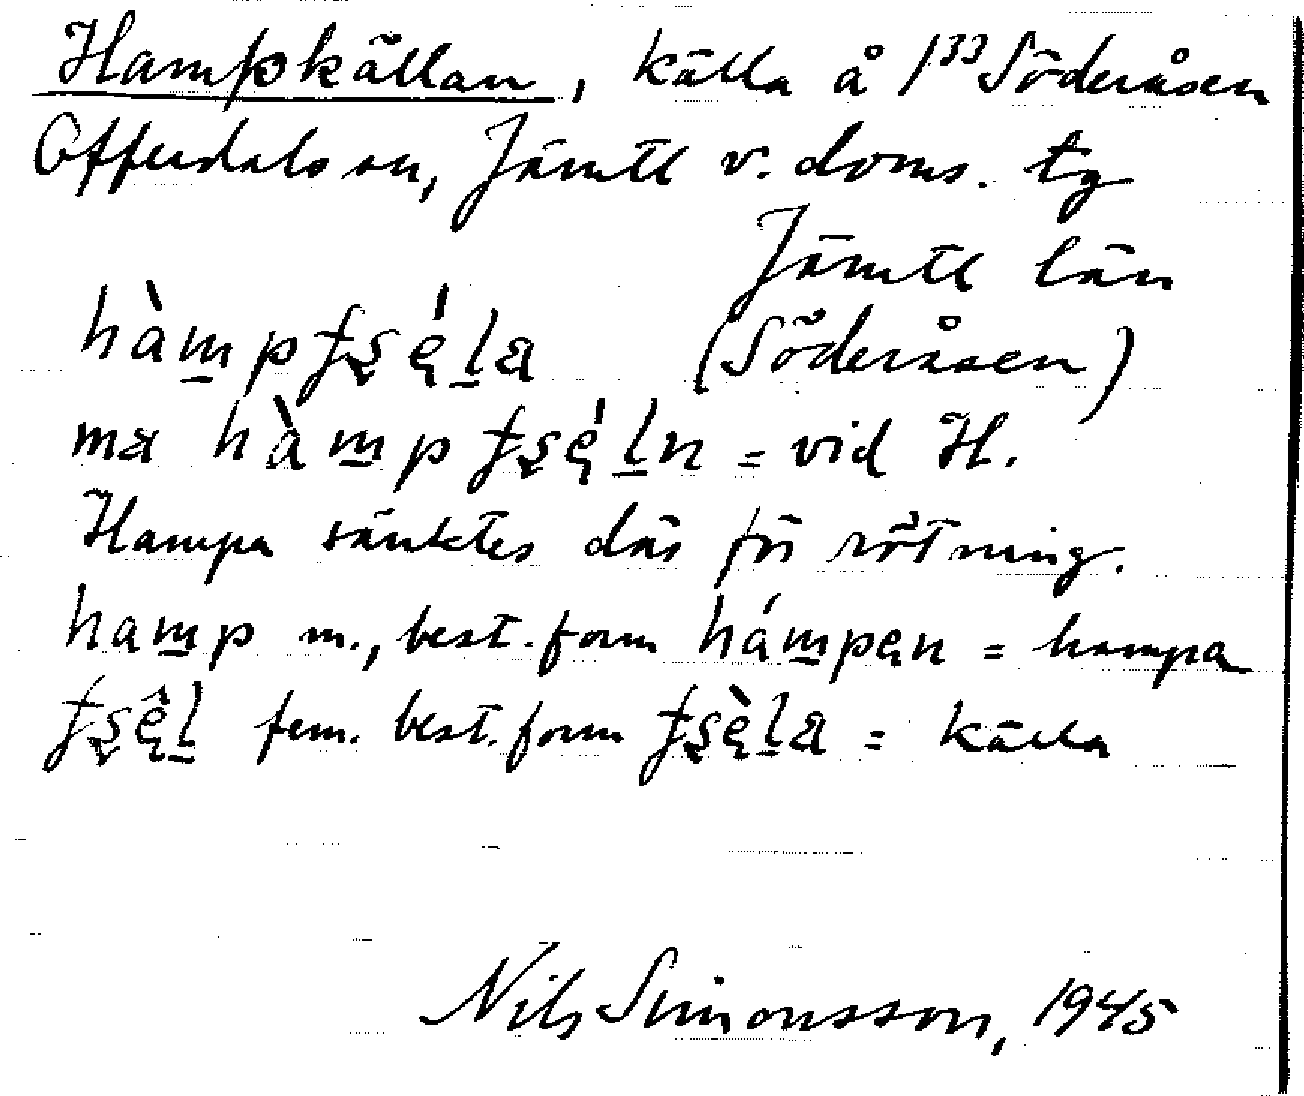 Hampkällan, källa å 1³³ Söderåsen
Offerdals sn, Jämtl v. doms. tg
Jämtl län
hàm̱pʈʂę́ḻa (Söderåsen)
ma hàm̱pʈʂę́ḻn = vid H.
Hampa sänktes där för rötning.
ham̱p m., best. form hám̱pęn = hampa
ʈʂę̂ḻ fem. best. form ʈʂę̀ḻa = källa
Nils Simonsson, 1945